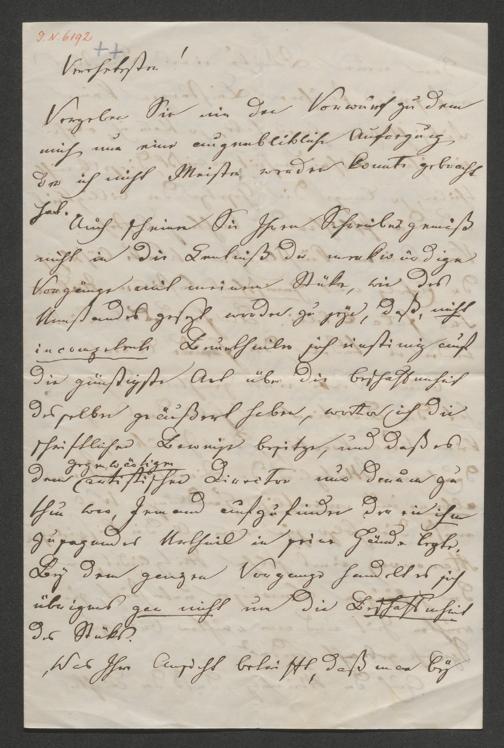 I. N. 6192
++
Verehrtester!
Vergeben Sie mir den Vorwurf zu dem
mich nur eine augenblikliche Aufregung
der ich nicht Meister werden konnte gebracht
hat.
Auch scheinen Sie Ihrem Schreiben gemäß
nicht in die Kentniß der merkwürdigen
Vorgänge mit meinem Stüke, wie des
Umstandes gesezt worden zu seyn, daß, nicht
incompetente Beurtheiler sich einstimig auf
die günstigste Art über die Beschaffenheit
desselben geäußert haben, worüber ich die
schriftlichen Beweise besitze, und daß es
dem gegenwärtigen artistischen Director nur darum zu
thun war, Jemand aufzufinden der ein ihm
zusagendes Urtheil in seine Hände legte.
Bey dem ganzen Vorgange handelt es sich
übrigens gar nicht um die Beschaffenheit
des Stüks.
Was Ihre Ansicht betrifft, daß man bey